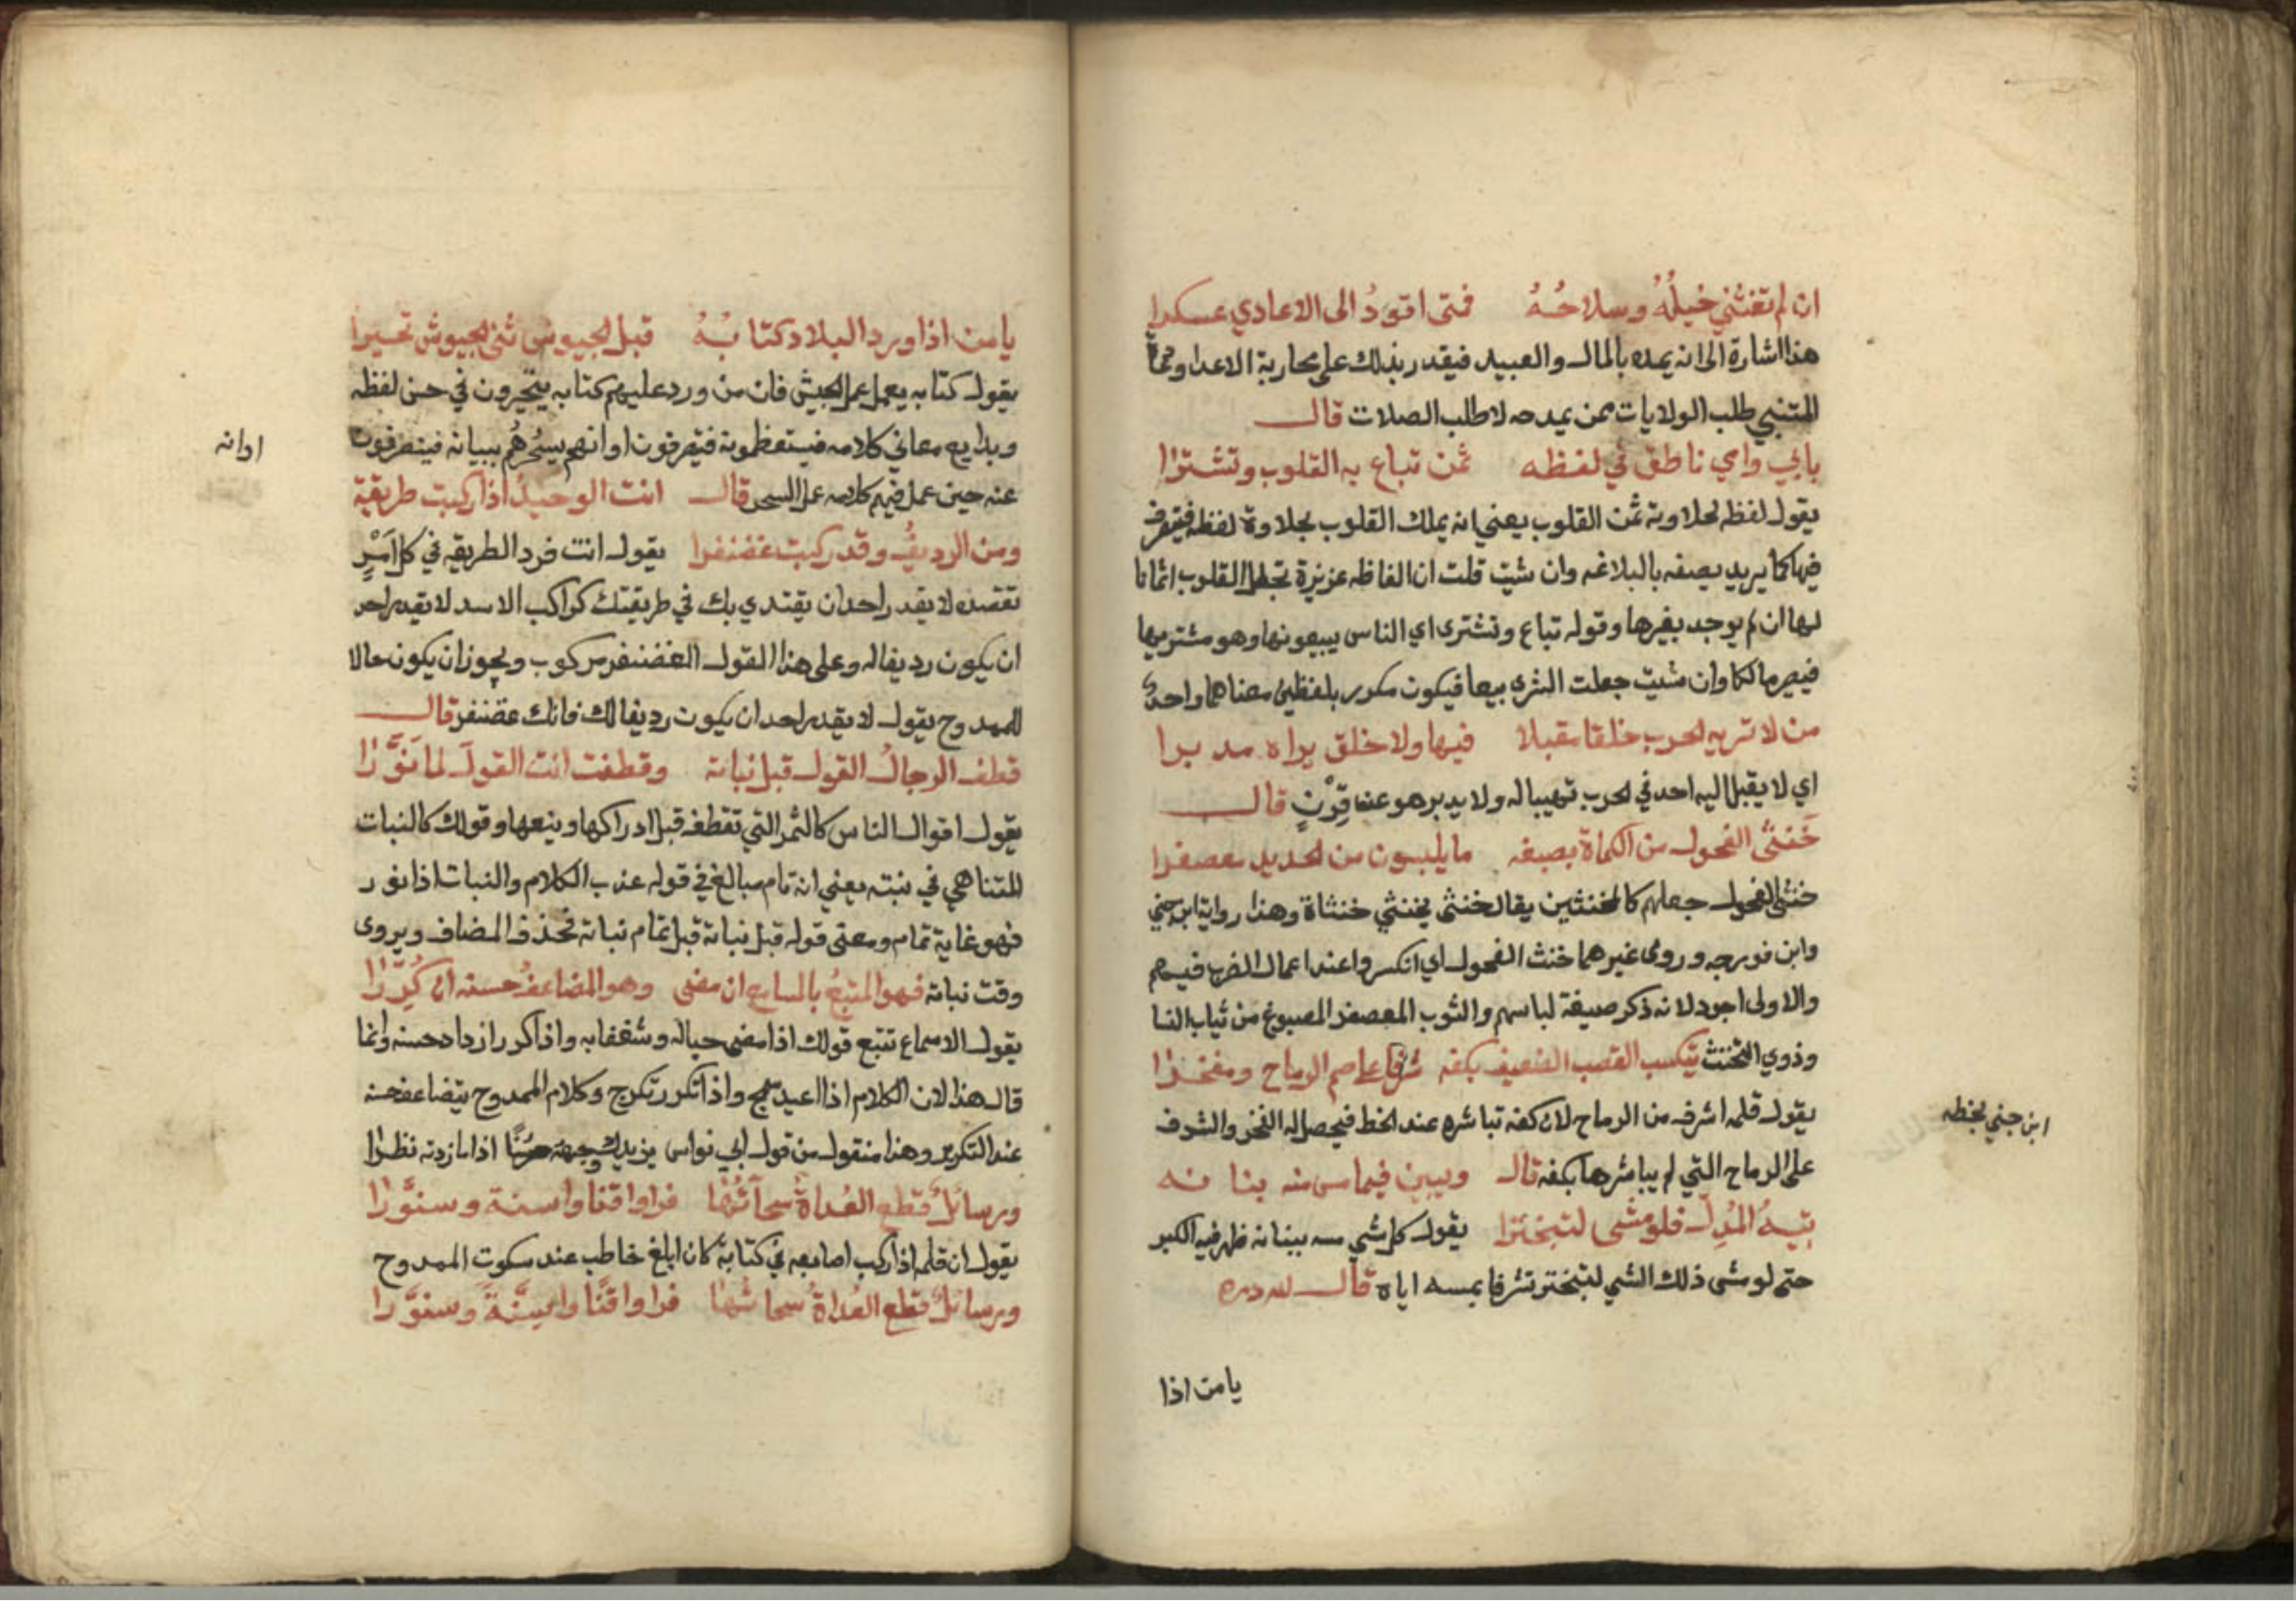 ان لم تغثني خيله وسلاحه فمتى اقود الى الاعادي عسكرا
هذا اشارة الى انه يمده بالمال والعبيد فيقدر بذلك على محاربة الاعدا
المتنبي طلب الولايات ممن يمدحه لا طلب الصلات قال
بابي وامي ناطق في لفظه ثمن تباع به القلوب وتشترا
يقول لفظه لحلاوته ثمن القلوب يعني انه يملك القلوب بحلاوة لفظه فيتصرف
فيها كما يريد يصفه بالبلاغه وان شيت قلت ان الفاظه عزيزة تجعل القلوب اثمانا
لها ان لم يوجد بغيرها وقوله تباع وتشترى اي الناس يبيعونها وهو مشتريها
فيصير مالكا وان شيت جعلت الشرى بيعا فيكون مكرر بلفظين معناهما واحد
من لا تريه الحرب خلقا مقبلا فيها ولا خلق يراه مدبرا
اي لا يقبل اليه احد في الحرب تهيبا له ولا يدبر هو عند قِرْنٍ قال
خَنثى الفحول من الكماة بصبغه ما يلبسون من الحديد معصفرا
خنثى الفحول جعلهم كالمخنثين يقال خنثى يخنثي خنثاة وهذا رواية ابن جني
وابن فورجه وروى غيرهما خنث الفحول اي انكسروا عند اعمال الضرب فيهم
والاولى اجود لانه ذكر صبغة لباسهم والثوب المعصفر المصبوغ من ثياب النسا
وذوي التخنث يتكسب القصب الضعيف بكفه شرفا على صم الرماح ومفخرا
يقول قلمه اشرف من الرماح لان كفه تباشره عند الخط فيحصل له الفخر والشرف
ابن جني بخطه
على الرماح التي لم يباشرها بكفه قال ويبين فيما مس منه بنانه
تيهُ المُدِلّ فلو مشى لتبخترا يقول كل شي مسه ببنانه ظهر فيه الكبر
حتى لو مشى ذلك الشي لتبختر تشرفا بمسه اياه قال لله دره
يا من اذا
يا من اذا ورد البلاد كتابُهُ قبل الجيوش ثنى الجيوش تحيرا
يقول كتابه يعمل عمل الجيش فان من ورد عليهم كتابه يتحيرون في حسن لفظه
وبدايع معاني كلامه فيستعظمونه فينصرفون او انهم يسحرهُم ببيانه فينصرفون
اوانه
عنه حين عمل فيهم كلامه عمل السحر قال انت الوحيدُ اذا ركبت طريقة
ومن الرديفُ وقد ركبت غضنفرا يقول انت فرد الطريقه في كل اَمْرٍ
تقصده لا يقدر احد ان يقتدي بك في طريقتك كراكب الاسد لا يقدر احد
ان يكون رديفا له وعلى هذا القول الغضنفر مركوب ويجوز ان يكون حالا
للممدوح يقول لا يقدر احد ان يكون رديفا لك فانك غضنفر قال
قطف الرجالُ القول قبل نباته وقطفت انت القولَ لما نَوَّرا
يقول اقوال الناس كالثمر التي تقطفه قبل ادراكها وينعها وقولك كالنبات
المتناهي في نبته يعني انه تام مبالغ في قوله عذب الكلام والنبات اذا نور
فهو غاية تمام ومعنى قوله قبل نباته قبل تمام نباته فحذف المضاف ويروى
وقت نباته فهو المتبعُ بالمسامع ان مضى وهو المضاعفُ حسنه ان كُرِّرا
يقول الاسماع تتبع قولك اذا مضى حباله وشغفا به واذا كرر ازداد حسنه وانما
قال هذا لان الكلام اذا اعيد سمج واذا تكرر تكرج وكلام الممدوح يتضاعف حسنه
عند التكرير وهذا منقول من قول ابي نواس يزيدك وجهه حسنًا اذا ما زدته نظرا
ورسائلٌ قطع العُداةُ سحآئَها فراوا قنا واسنة وسنوَّرا
يقول ان قلمه اذا ركب اصابعه في كتابة كان ابلغ خاطب عند سكوت الممدوح
ورسائلٌ قطع العُداةُ سحاءَها فراوا قنًا واسِنَّةً وسنوَّرا